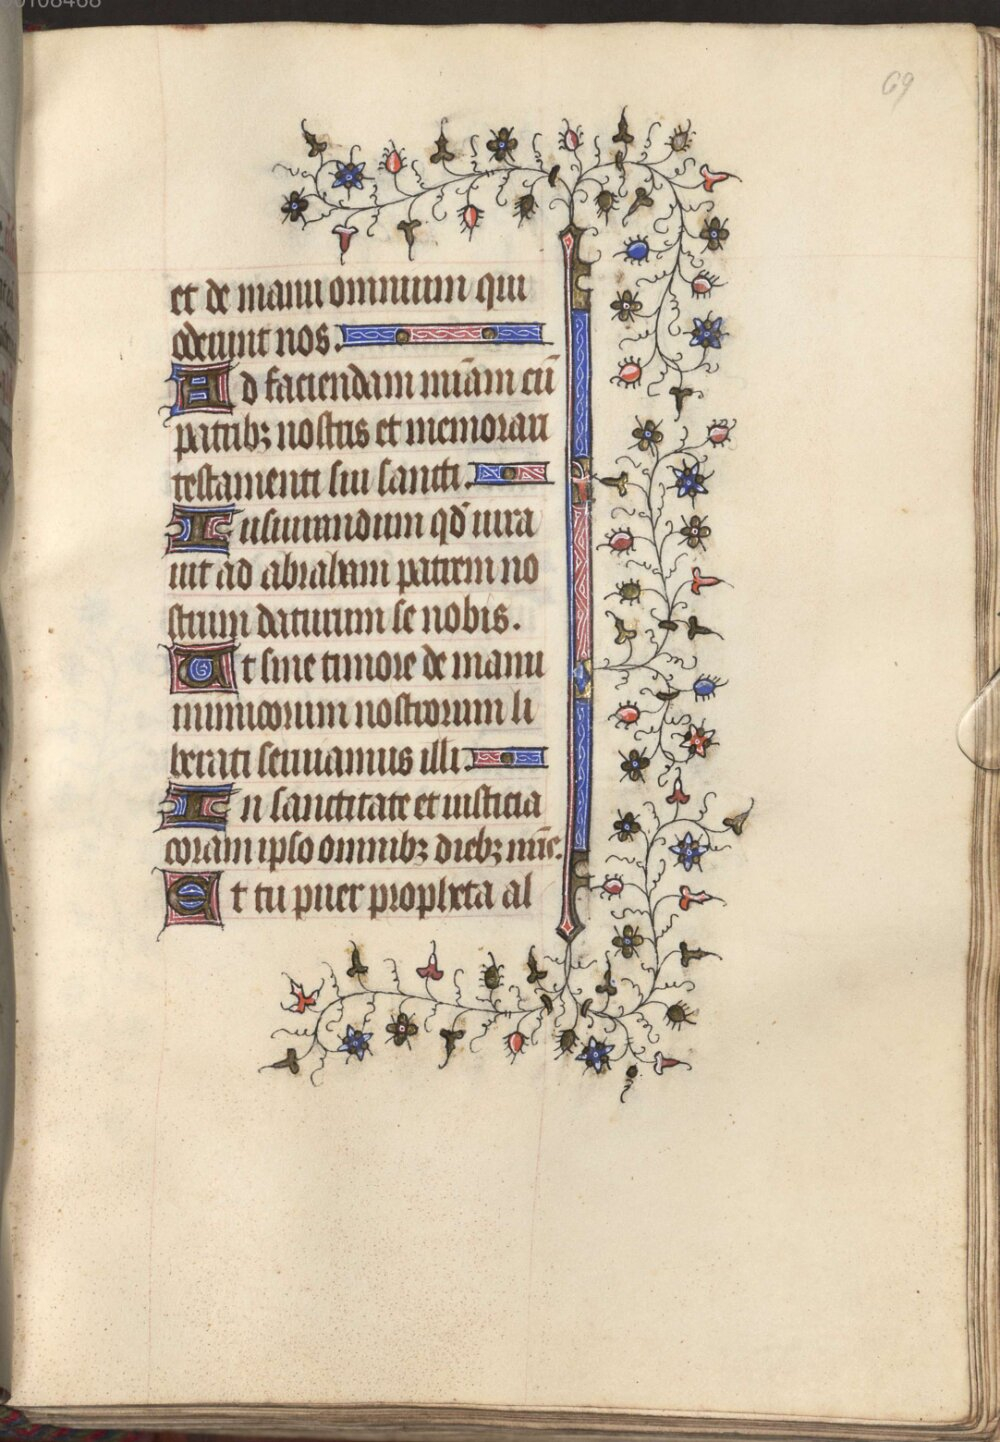 69
et de manu omnium qui
oderunt nos.
Ad faciendam mīam cū
patribꝫ nostris et memorari
testamenti sui sancti.
Iusiurandum qđ iura
uit ad abraham patrem no
strum daturum se nobis.
Ut sine timore de manu
inimicorum nostrorum li
berati seruiamus illi
In sanctitate et iusticia
coram ipso omnibꝫ diebꝫ nr̄ıs.
Et tu puer propheta al